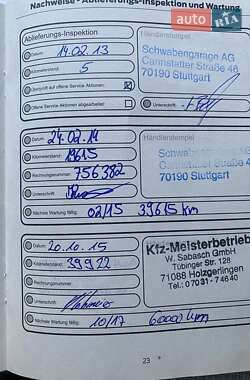 Nachweise - Ablieferungs-Inspektion und Wartung
AUTO RIA
Ablieferungs-Inspektion
Händlerstempel
Datum: 14.02.13
Schwabengarage AG
Cannstatter Straße 46
70190 Stuttgart
Kilometerstand: 5
Überprüft auf offene Service-Aktionen:
Offene Service-Aktionen abgearbeitet:
Unterschrift:
Datum: 24.02.14
Händlerstempel
Kilometerstand: 19615
Schwabengarage AG
Cannstatter Straße 46
70190 Stuttgart
Rechnungsnummer: 756382
Unterschrift:
Nächste Wartung fällig: 02/15 39615 km
Datum: 20.10.15
Kfz-Meisterbetrieb
W. Sabasch GmbH
Tübinger Str. 128
71088 Holzgerlingen
Tel.: 0 70 31 - 7 46 40
Kilometerstand: 39922
Rechnungsnummer:
Unterschrift:
Nächste Wartung fällig: 10/17 60000 km
23